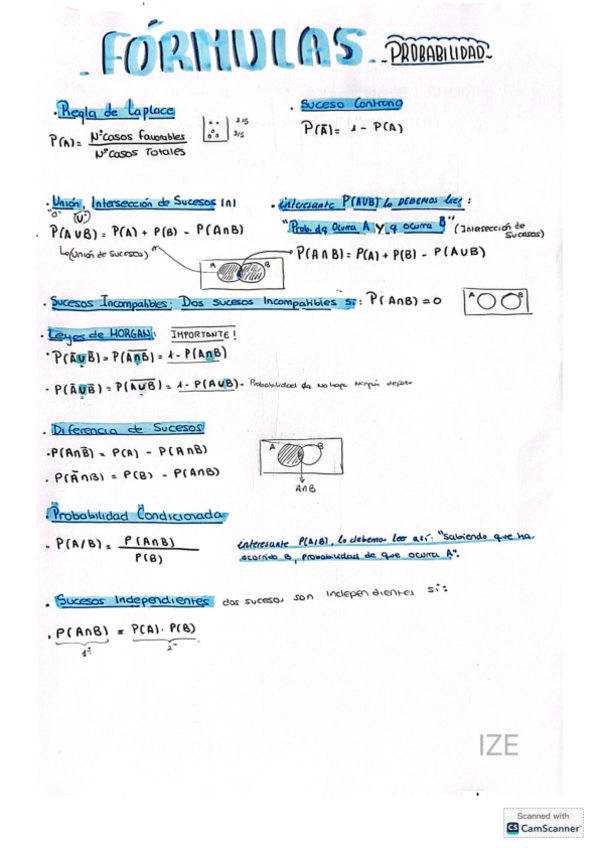 FÓRMULAS. PROBABILIDAD
. Regla de Laplace
P(A) = NºCasos Favorables / NºCasos Totales
2/5
3/5
. Suceso Contrario
P(A̅) = 1 - P(A)
. Unión, Intersección de Sucesos (∩)
"o" (U)
. P(A∪B) = P(A) + P(B) - P(A∩B)
(Unión de Sucesos)
A B
. interesante P(A∪B) lo DEBEMOS leer :
"Prob. dq Ocurra A y q ocurra B" (Intersección de Sucesos)
P(A∩B) = P(A) + P(B) - P(A∪B)
. Sucesos Incompatibles: Dos sucesos Incompatibles si: P(A∩B) = 0
A B
. Leyes de MORGAN: IMPORTANTE!
· P(A̅∪B̅) = P(A∩B)‾ = 1 - P(A∩B)
· P(A̅∪B̅) = P(A∪B)‾ = 1 - P(A∪B) - Probabilidad de No haya Ningún
. Diferencia de Sucesos
· P(A∩B̅) = P(A) - P(A∩B)
· P(A̅∩B) = P(B) - P(A∩B)
A B
A∩B
. Probabilidad Condicionada
· P(A/B) = P(A∩B) / P(B)
interesante P(A/B), lo debemos leer así: "Sabiendo que ha
ocurrido B, probabilidad de que ocurra A".
. Sucesos Independientes dos sucesos son independientes si:
· P(A∩B) = P(A) · P(B)
1º 2º
IZE
Scanned with
CS CamScanner